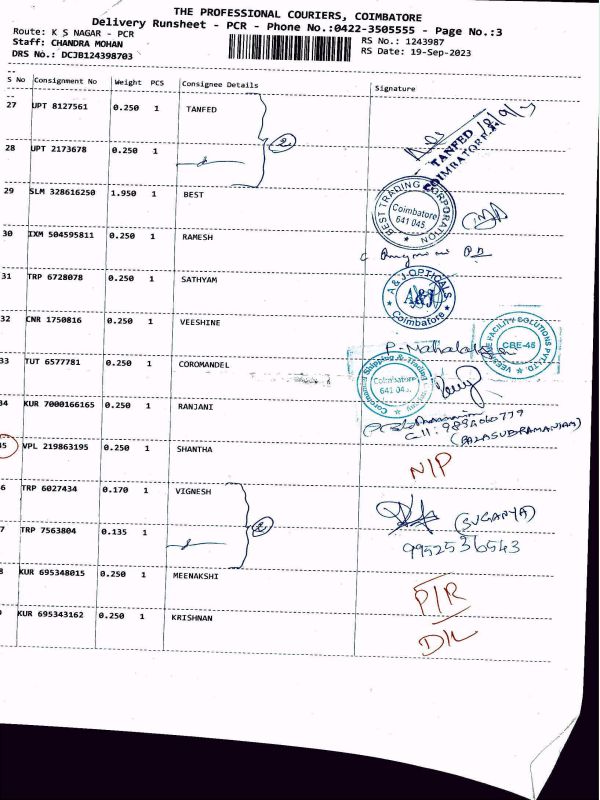 THE PROFESSIONAL COURIERS, COIMBATORE
Delivery Runsheet - PCR - Phone No.:0422-3505555 - Page No.:3
Route: K S NAGAR - PCR
Staff: CHANDRA MOHAN
DRS No.: DCJB124398703
RS No.: 1243987
RS Date: 19-Sep-2023
S No Consignment No Weight PCS Consignee Details Signature
27 UPT 8127561 0.250 1 TANFED
TANFED
COIMBATORE
28 UPT 2173678 0.250 1
2
29 SLM 328616250 1.950 1 BEST
BEST TRADING CORPORATION
Coimbatore
641 045
30 IXM 504595811 0.250 1 RAMESH
31 TRP 6728078 0.250 1 SATHYAM
A & J OPTICALS
A&J
Coimbatore
32 CNR 1750816 0.250 1 VEESHINE
FACILITY SOLUTIONS PVT LTD.
CBE-45
33 TUT 6577781 0.250 1 COROMANDEL
Coromandel Shipping & Trading
Coimbatore
641 045.
34 KUR 7000166165 0.250 1 RANJANI
(BALASUBRAMANIAM)
35 VPL 219863195 0.250 1 SHANTHA
N/P
6 TRP 6027434 0.170 1 VIGNESH
(SUGANYA)
7 TRP 7563804 0.135 1
2
9952536543
8 KUR 695348015 0.250 1 MEENAKSHI
P/R
9 KUR 695343162 0.250 1 KRISHNAN
D/L